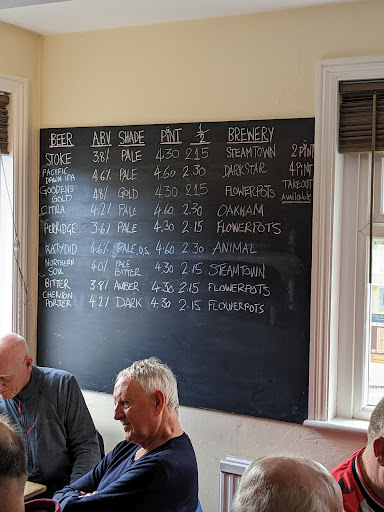 BEER ABV SHADE PINT ½ BREWERY
STOKE 3.8% PALE 4.30 2.15 STEAMTOWN
PACIFIC DAWN IPA 4.6% PALE 4.60 2.30 DARKSTAR
GOODENS GOLD 4.8% GOLD 4.30 2.15 FLOWERPOTS
CITRA 4.2% PALE 4.60 2.30 OAKHAM
PERRIDGE 3.6% PALE 4.30 2.15 FLOWERPOTS
KATYDID 4.6% PALE O.S. 4.60 2.30 ANIMAL
NORTHERN SOUL 4.0% PALE BITTER 4.30 2.15 STEAMTOWN
BITTER 3.8% AMBER 4.30 2.15 FLOWERPOTS
CHERITON PORTER 4.2% DARK 4.30 2.15 FLOWERPOTS
2 PINT
4 PINT
TAKEOUT
Available